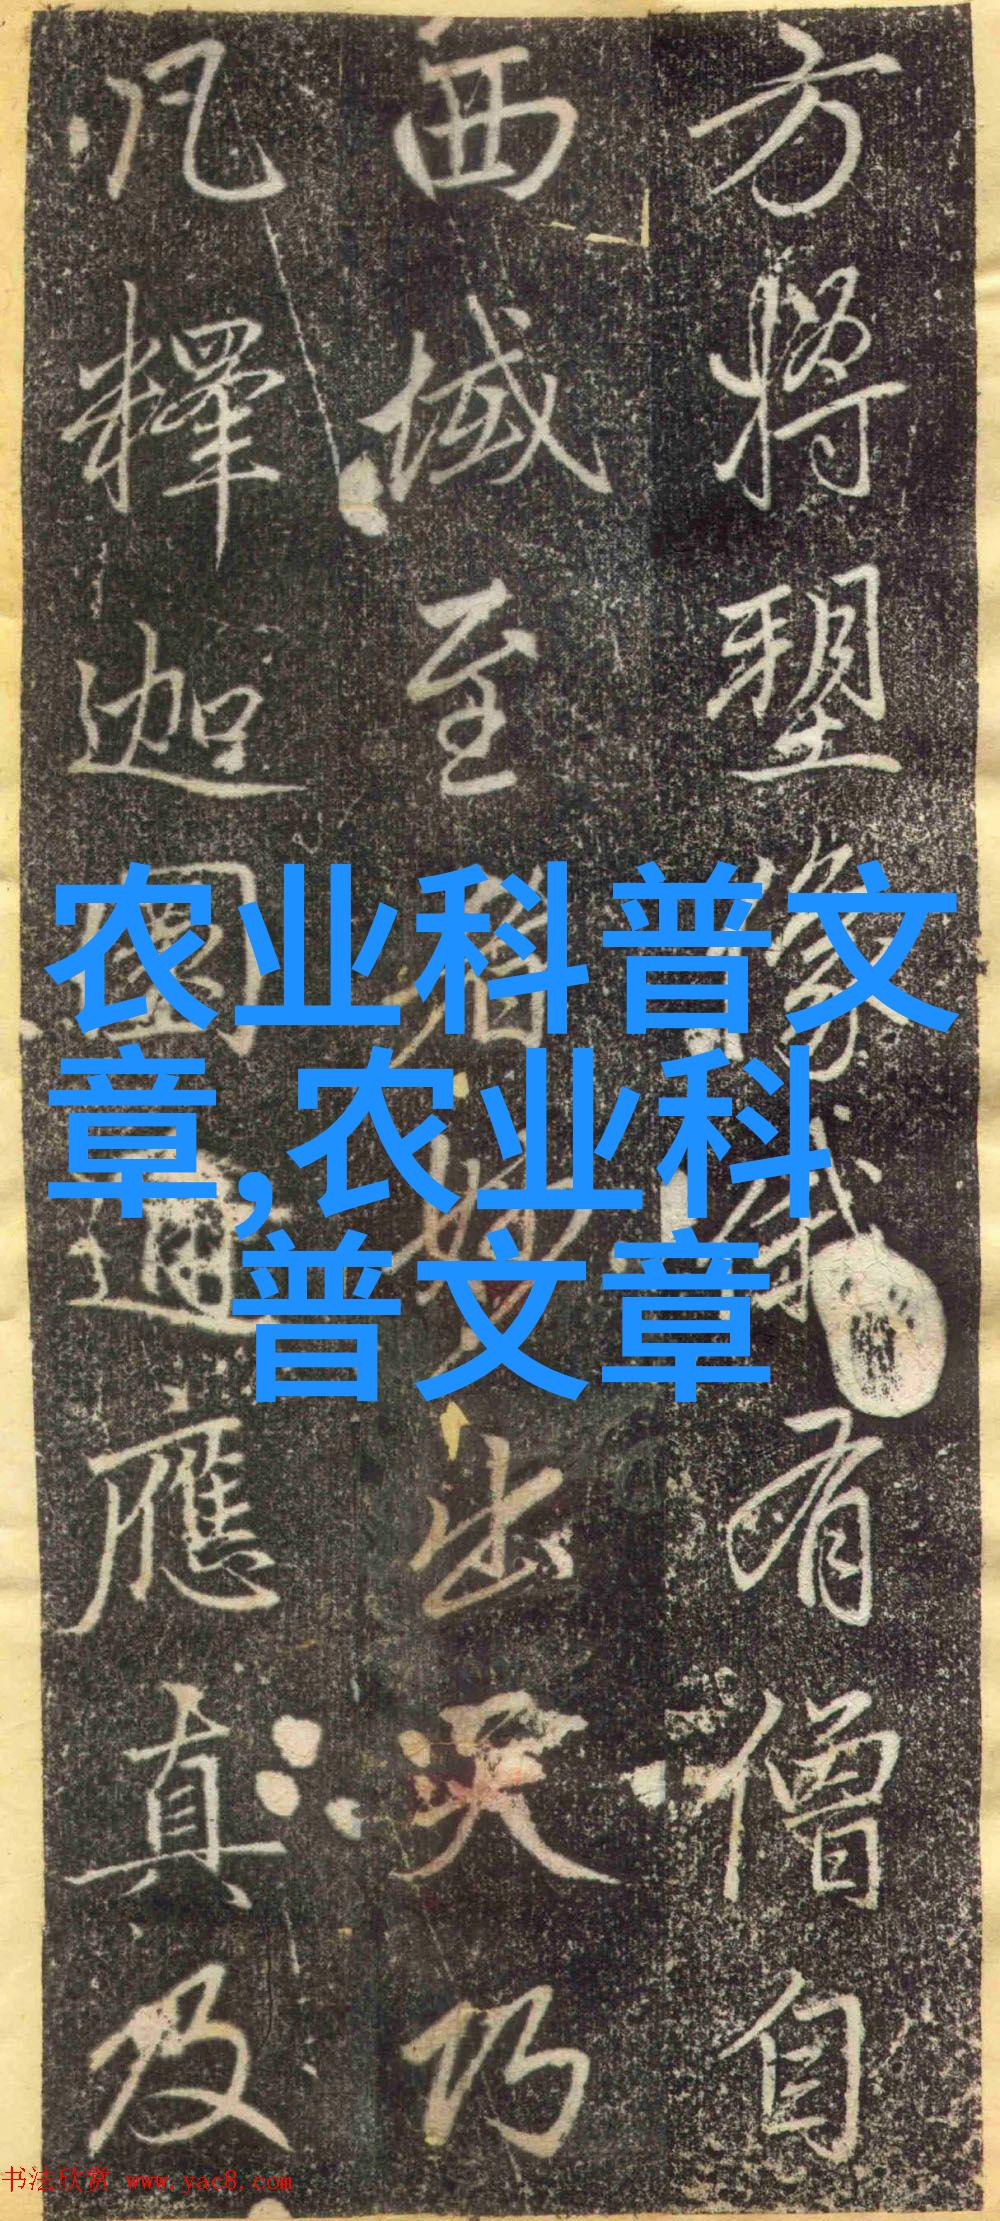 方將塑像有僧自
西域至者妙出天巧
凡釋迦應真及
农业科普文
章,农业科
普文章
书法欣赏 www.yac8.com